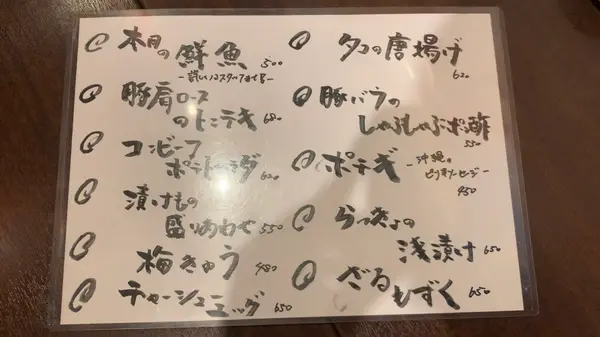 本日の鮮魚 500
豚肩ロース
のトンテキ 680
コンビーフ
ポテトサラダ 620
漬けもの
盛りあわせ 550
梅きゅう 480
チャーシューエッグ 650
タコの唐揚げ
620
豚バラの
しゃぶしゃぶポン酢
550
ポテギ -沖縄の
ピリ辛ソーセージ-
450
らっきょの
浅漬け 650
ざる
もずく 650